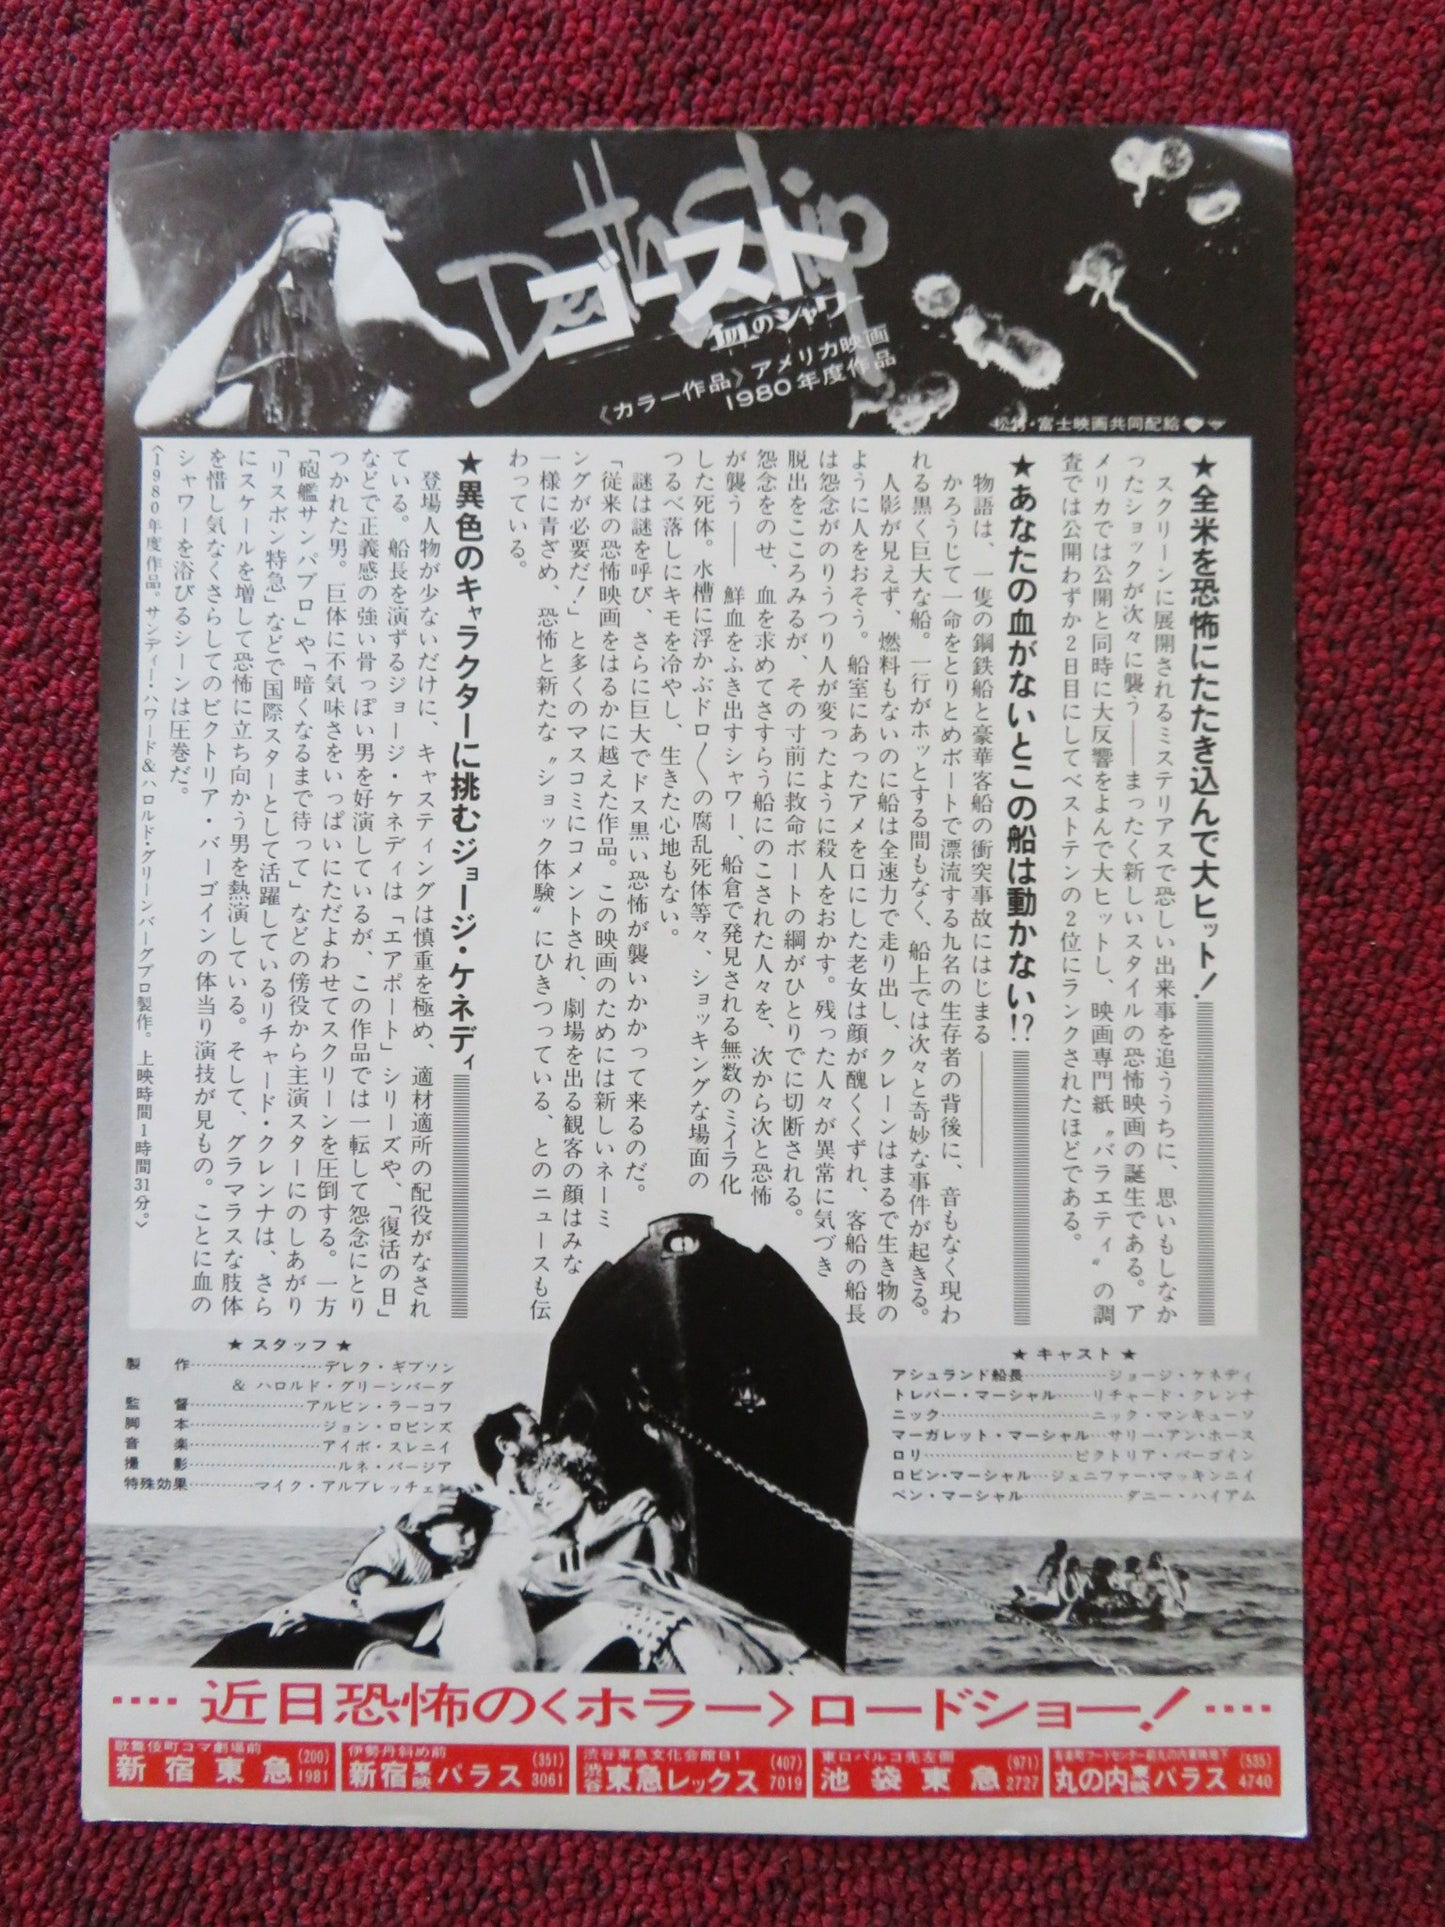 Death Ship
ゴースト
血のシャワー
《カラー作品》アメリカ映画
1980年度作品
松竹・富士映画共同配給
★全米を恐怖にたたき込んで大ヒット!
スクリーンに展開されるミステリアスで恐しい出来事を追ううちに、思いもしなか
ったショックが次々に襲う——まったく新しいスタイルの恐怖映画の誕生である。ア
メリカでは公開と同時に大反響をよんで大ヒットし、映画専門紙〝バラエティ〟の調
査では公開わずか2日目にしてベストテンの2位にランクされたほどである。
★あなたの血がないとこの船は動かない!?
物語は、一隻の鋼鉄船と豪華客船の衝突事故にはじまる——
かろうじて一命をとりとめボートで漂流する九名の生存者の背後に、音もなく現わ
れる黒く巨大な船。一行がホッとする間もなく、船上では次々と奇妙な事件が起きる。
人影が見えず、燃料もないのに船は全速力で走り出し、クレーンはまるで生き物の
ように人をおそう。船室にあったアメを口にした老女は顔が醜くくずれ、客船の船長
は怨念がのりうつり人が変ったように殺人をおかす。残った人々が異常に気づき
脱出をこころみるが、その寸前に救命ボートの綱がひとりでに切断される。
怨念をのせ、血を求めてさすらう船にのこされた人々を、次から次と恐怖
が襲う——　鮮血をふき出すシャワー、船倉で発見される無数のミイラ化
した死体。水槽に浮かぶドロ〳〵の腐乱死体等々、ショッキングな場面の
つるべ落しにキモを冷やし、生きた心地もない。
謎は謎を呼び、さらに巨大でドス黒い恐怖が襲いかかって来るのだ。
「従来の恐怖映画をはるかに越えた作品。この映画のためには新しいネーミ
ングが必要だ!」と多くのマスコミにコメントされ、劇場を出る観客の顔はみな
一様に青ざめ、恐怖と新たな〝ショック体験〟にひきつっている、とのニュースも伝
わっている。
★異色のキャラクターに挑むジョージ・ケネディ
登場人物が少ないだけに、キャスティングは慎重を極め、適材適所の配役がなされ
ている。船長を演ずるジョージ・ケネディは「エアポート」シリーズや、「復活の日」
などで正義感の強い骨っぽい男を好演しているが、この作品では一転して怨念にとり
つかれた男。巨体に不気味さをいっぱいにただよわせてスクリーンを圧倒する。一方
「砲艦サンパブロ」や「暗くなるまで待って」などの傍役から主演スターにのしあがり
「リスボン特急」などで国際スターとして活躍しているリチャード・クレンナは、さら
にスケールを増して恐怖に立ち向かう男を熱演している。そして、グラマラスな肢体
を惜し気なくさらしてのビクトリア・バーゴインの体当り演技が見もの。ことに血の
シャワーを浴びるシーンは圧巻だ。
〈1980年度作品。サンディー・ハワード&ハロルド・グリーンバーグプロ製作。上映時間1時間31分。〉
★キャスト★
アシュランド船長……ジョージ・ケネディ
トレバー・マーシャル……リチャード・クレンナ
ニック……ニック・マンキューソ
マーガレット・マーシャル…サリー・アン・ホース
ロリ……ビクトリア・バーゴイン
ロビン・マーシャル…ジェニファー・マッキンニイ
ベン・マーシャル……ダニー・ハイアム
★スタッフ★
製作……デレク・ギブソン
& ハロルド・グリーンバーグ
監督……アルビン・ラーコフ
脚本……ジョン・ロビンズ
音楽……アイボ・スレニイ
撮影……ルネ・バージア
特殊効果……マイク・アルブレッチェン
‥‥近日恐怖の〈ホラー〉ロードショー!‥‥
歌舞伎町コマ劇場前
新宿東急 (200) 1981
伊勢丹斜め前
新宿東映パラス (351) 3061
渋谷東急文化会館B1
渋谷東急レックス (407) 7019
東口パルコ先左側
池袋東急 (971) 2727
有楽町フードセンター前丸の内東映地下
丸の内東映パラス (535) 4740